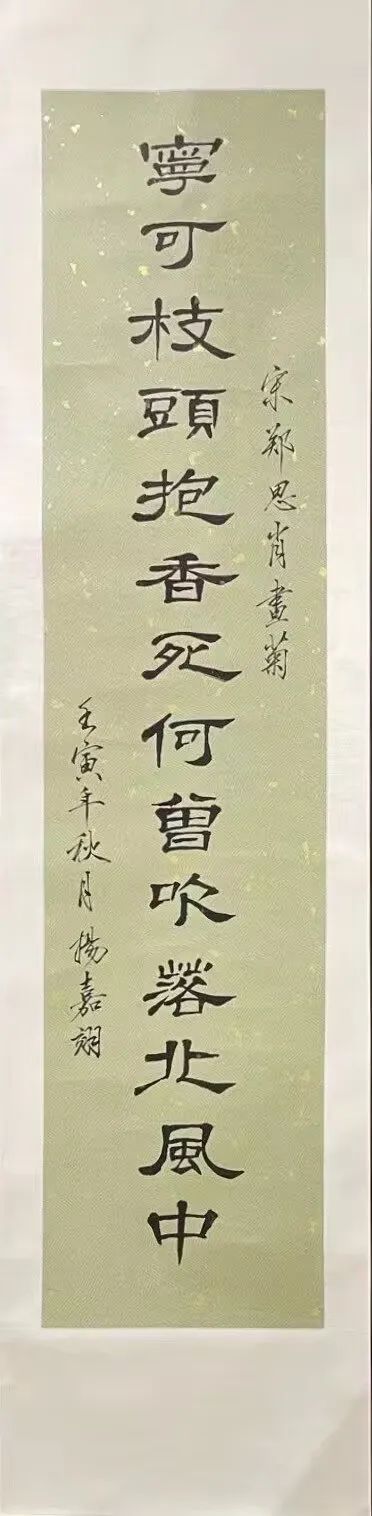 宋郑思肖畫菊
寧可枝頭抱香死何曾吹落北風中
壬寅年秋月楊嘉翊